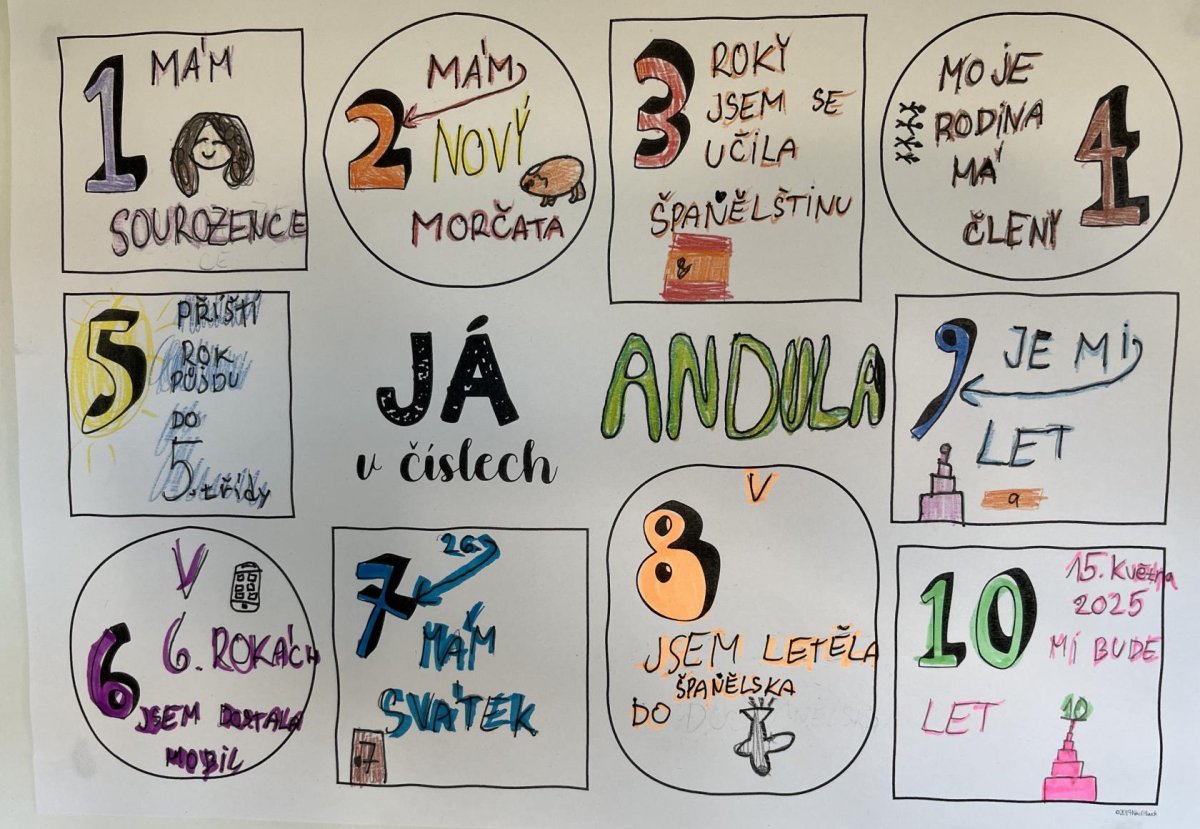 1 MÁM
SOUROZENCE
CE
MÁM
2 NOVÝ
MORČATA
3 ROKY
JSEM SE
UČILA
ŠPANĚLŠTINU
MOJE
RODINA
MÁ 4
ČLENY
5 PŘÍŠTÍ
ROK
PŮJDU
DO
5. třídy
JÁ
v číslech
ANDULA
9 JE MI
LET
9
V
6. ROKÁCH
6
JSEM DOSTALA
MOBIL
26.
7
MÁM
SVÁTEK
7
V
8
JSEM LETĚLA
ŠPANĚLSKA
DO
10 15. Května
2025
MI BUDE
LET
10